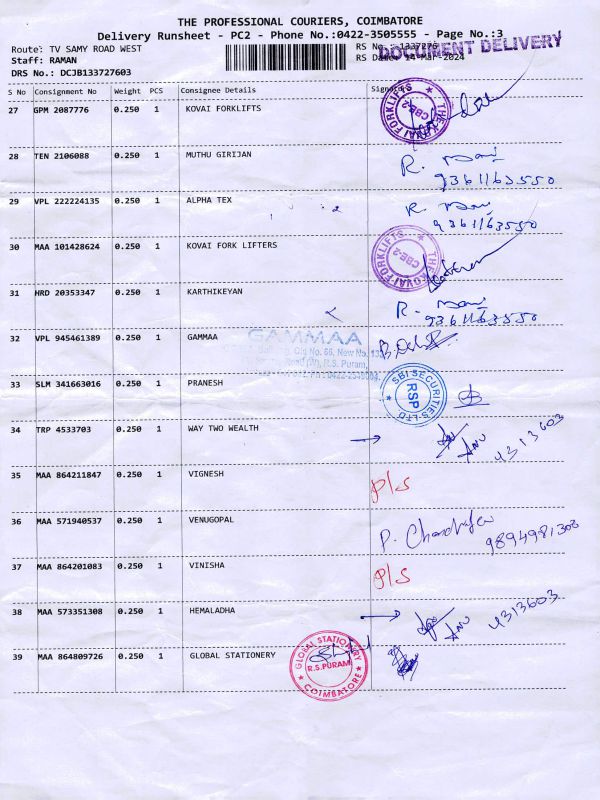 THE PROFESSIONAL COURIERS, COIMBATORE
Delivery Runsheet - PC2 - Phone No.:0422-3505555 - Page No.:3
Route: TV SAMY ROAD WEST
RS No.: 1337276
DOCUMENT DELIVERY
Staff: RAMAN
RS Date: 14-Mar-2024
DRS No.: DCJB133727603
S No Consignment No Weight PCS Consignee Details Signature
27 GPM 2087776 0.250 1 KOVAI FORKLIFTS
THE KOVAI FORKLIFTS CBE-2
28 TEN 2106088 0.250 1 MUTHU GIRIJAN
R. Mani
9361163550
29 VPL 222224135 0.250 1 ALPHA TEX
R. Mani
9361163550
30 MAA 101428624 0.250 1 KOVAI FORK LIFTERS
THE KOVAI FORKLIFTS CBE-2
31 HRD 20353347 0.250 1 KARTHIKEYAN
R. Mani
9361163550
32 VPL 945461389 0.250 1 GAMMAA
GAMMAA
Old No. 66, New No. 132
R.S. Puram,
33 SLM 341663016 0.250 1 PRANESH
SBI SECURITIES LTD RSP
34 TRP 4533703 0.250 1 WAY TWO WEALTH
ANU 4313603
35 MAA 864211847 0.250 1 VIGNESH
P/S
36 MAA 571940537 0.250 1 VENUGOPAL
9894981308
37 MAA 864201083 0.250 1 VINISHA
P/S
38 MAA 573351308 0.250 1 HEMALADHA
ANU 4313603
39 MAA 864809726 0.250 1 GLOBAL STATIONERY
GLOBAL STATIONERY R.S.PURAM COIMBATORE